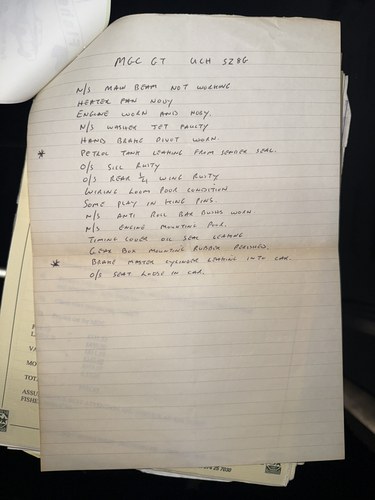 MGC GT UCH 528G
N/S MAIN BEAM NOT WORKING
HEATER FAN NOISY
ENGINE WORN AND NOSY.
N/S WASHER JET FAULTY
HAND BRAKE PIVOT WORN.
* PETROL TANK LEAKING FROM SENDER SEAL.
O/S SILL RUSTY
O/S REAR 1/4 WING RUSTY
WIRING LOOM POOR CONDITION
SOME PLAY IN KING PINS.
N/S ANTI ROLL BAR BUSHS WORN
N/S ENGINE MOUNTING POOR.
TIMING COVER OIL SEAL LEAKING
GEAR BOX MOUNTING RUBBER PERISHED.
* BRAKE MASTER CYLINDER LEAKING INTO CAR.
O/S SEAT LOOSE IN CAR.
VA
MO
TOT
ASSU
FISHE